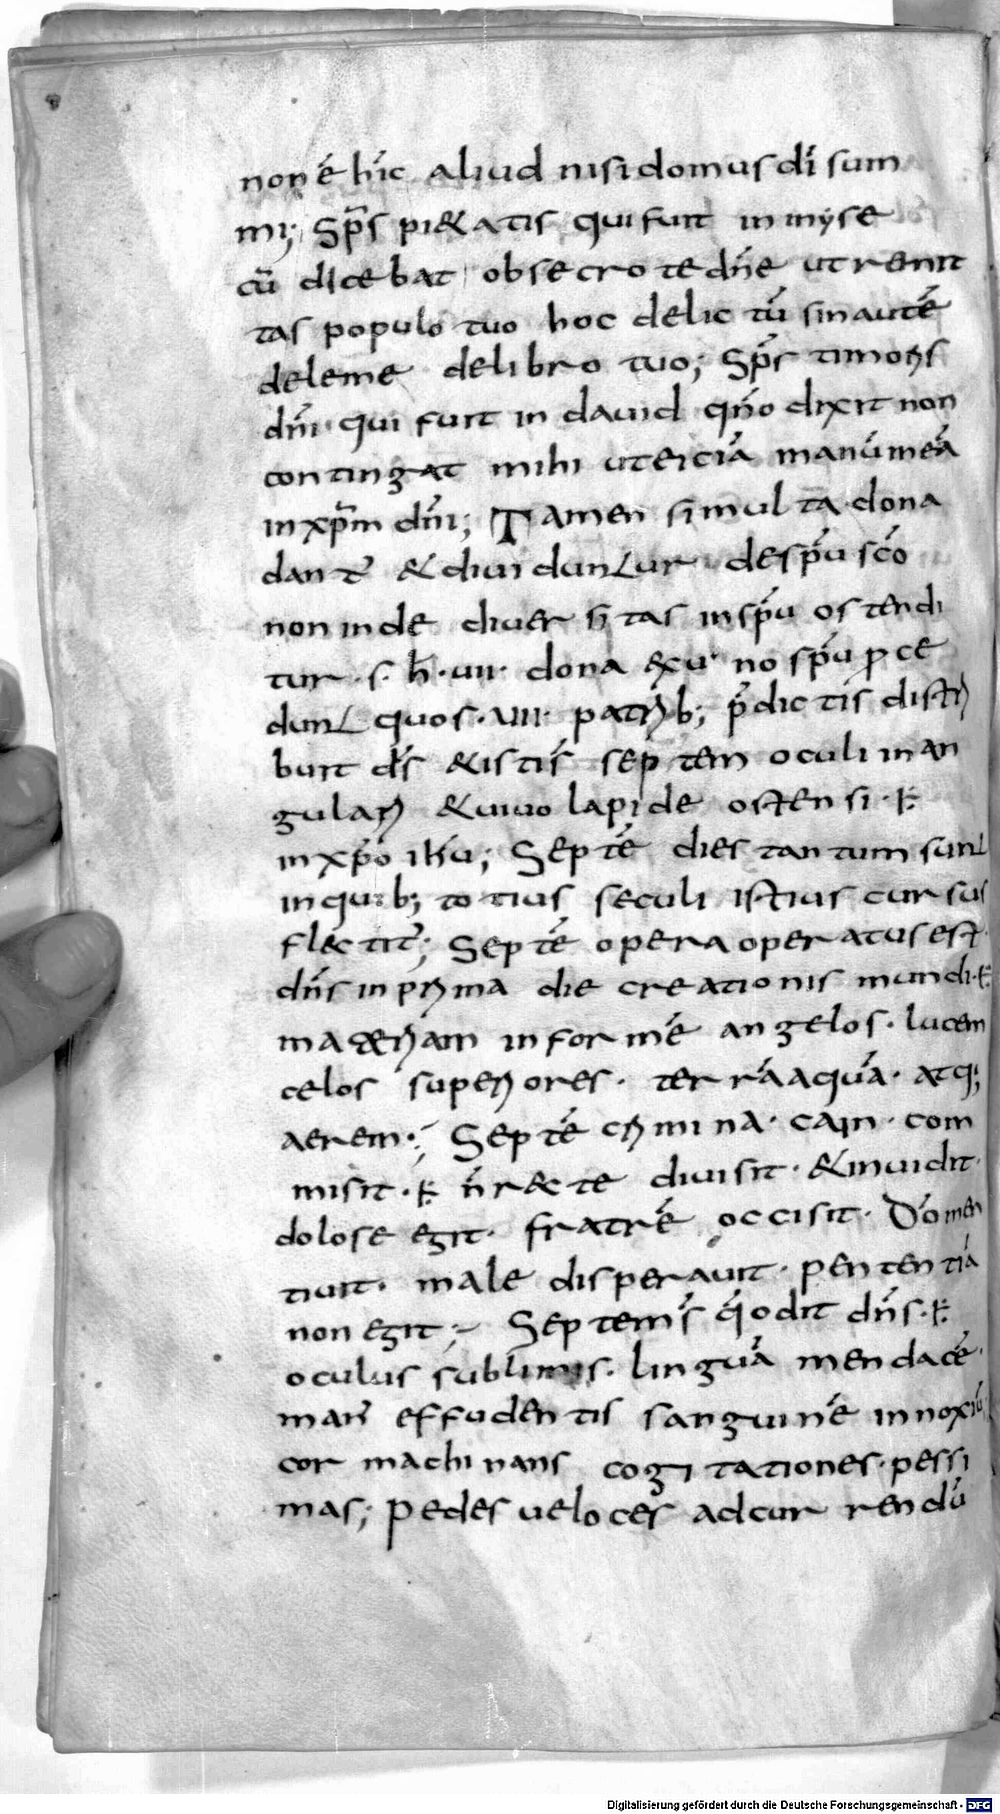 non ē híc aliud nisi domus dī sum
mi; Sp̄s pi&atis qui fuit in myse
cū dicebat obsecro te dn̄e ut remit
tas populo tuo hoc delictū sin autē
deleme de libro tuo; Sp̄s timoris
dn̄i qui fuit in dauid qn̄o dixit non
contingat mihi ut eiciā manū meā
in xp̄m dn̄i; Tamen si multa dona
dant᷑ & diuiduntur de sp̄u sc̄o
non inde diuersitas in sp̄u ostendi
tur .s. h̄ .uii. dona ex u no sp̄u ꝓce
dunt quos .uiii. patrib; p̄dictis distri
buit ds̄ & istis septem oculi in an
gulari & uiuo lapide ostensi .
in xp̄o ih̄u; Septē dies tantum sunt
in quib; totius seculi istius cursus
flectit᷑; Septē opera operatus est
dn̄s in prima die creationis mundi .
materiam informē angelos. lucem
celos superiores. terrā aquā. atq;
aerem; Septē crimina. cain. com
misit . n̄ recte diuisit. & inuidit.
dolose egit. fratrē occisit. Dō men
tiuit. male disperauit. penitentiā
non egit; Septem s̄ q̄ odit dn̄s.
oculus sublimis. linguā mendacē.
man᷑ effudentis sanguinē innoxiū
cor machinans cogitationes. pessi
mas; pedes ueloces ad currendū
Digitalisierung gefördert durch die Deutsche Forschungsgemeinschaft - DFG